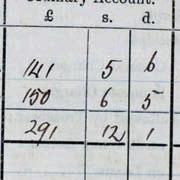 Ordinary Account.
£ s. d.
141 5 6
150 6 5
291 12 1